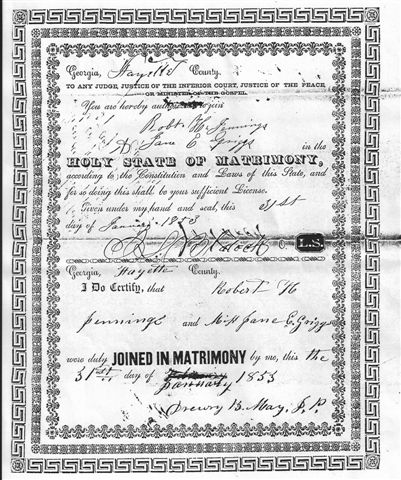 Georgia, Fayette County.
TO ANY JUDGE, JUSTICE OF THE INFERIOR COURT, JUSTICE OF THE PEACE
OR MINISTER OF THE GOSPEL.
You are hereby to join
Robt H Jennings
& Jane C Griggs in the
HOLY STATE OF MATRIMONY,
according to the Constitution and Laws of this State, and
for so doing this shall be your sufficient License.
Given under my hand and seal, this 31st
day of January 1853
L.S.
Georgia, Fayette County.
I Do Certify, that Robert H
Jennings and Jane C Griggs
were duly JOINED IN MATRIMONY by me, this the
31st day of January 1853
Drewry B. May, J. P.